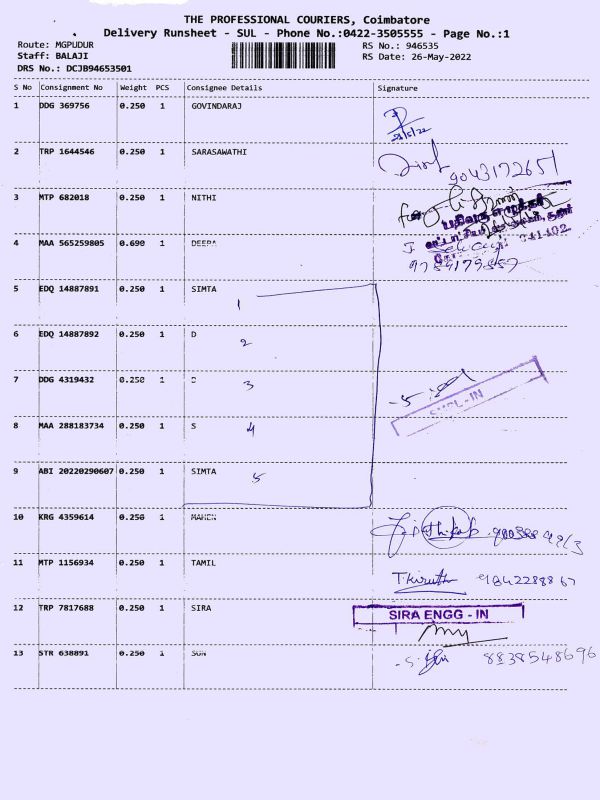 THE PROFESSIONAL COURIERS, Coimbatore
Delivery Runsheet - SUL - Phone No.:0422-3505555 - Page No.:1
Route: MGPUDUR RS No.: 946535
Staff: BALAJI RS Date: 26-May-2022
DRS No.: DCJB94653501
S No Consignment No Weight PCS Consignee Details Signature
1 DDG 369756 0.250 1 GOVINDARAJ
2 TRP 1644546 0.250 1 SARASAWATHI
9043172651
3 MTP 682018 0.250 1 NITHI
4 MAA 565259805 0.690 1 DEEPA
641402
5 EDQ 14887891 0.250 1 SIMTA
1
6 EDQ 14887892 0.250 1 D
2
7 DDG 4319432 0.250 1
3
- 5
8 MAA 288183734 0.250 1 S
4
9 ABI 20220290607 0.250 1 SIMTA
5
10 KRG 4359614 0.250 1
11 MTP 1156934 0.250 1 TAMIL
12 TRP 7817688 0.250 1 SIRA
SIRA ENGG - IN
13 STR 638891 0.250 1 SUN
8838548696